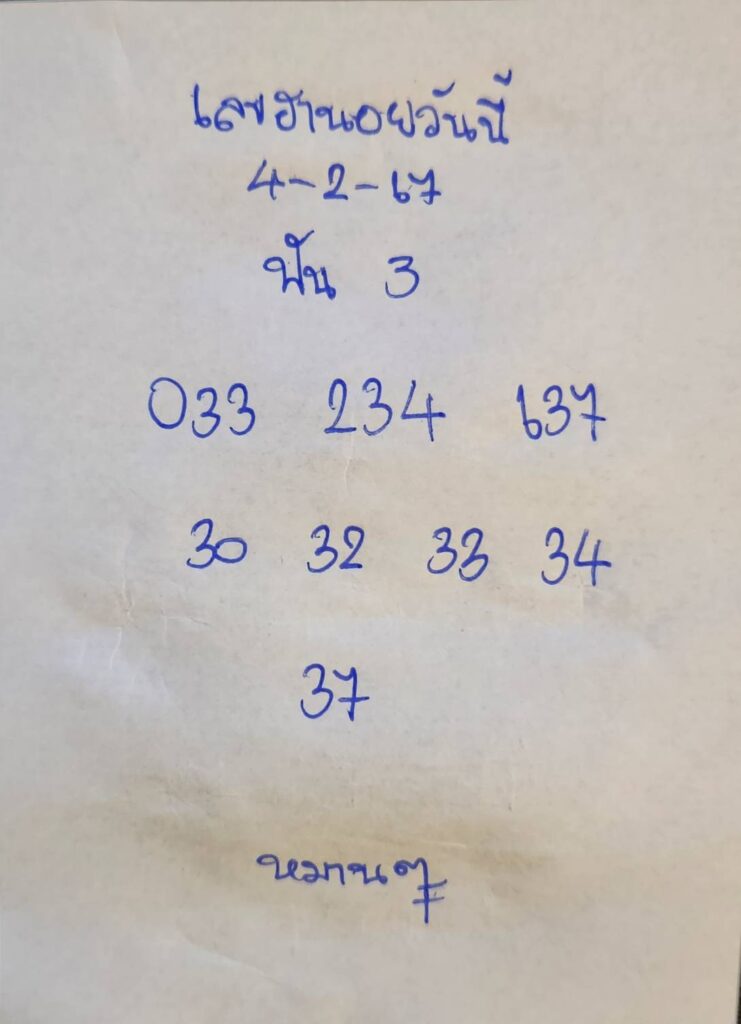 เลขฮานอยวันนี้
4-2-67
ฟัน 3
033 234 637
30 32 33 34
37
หมานๆ